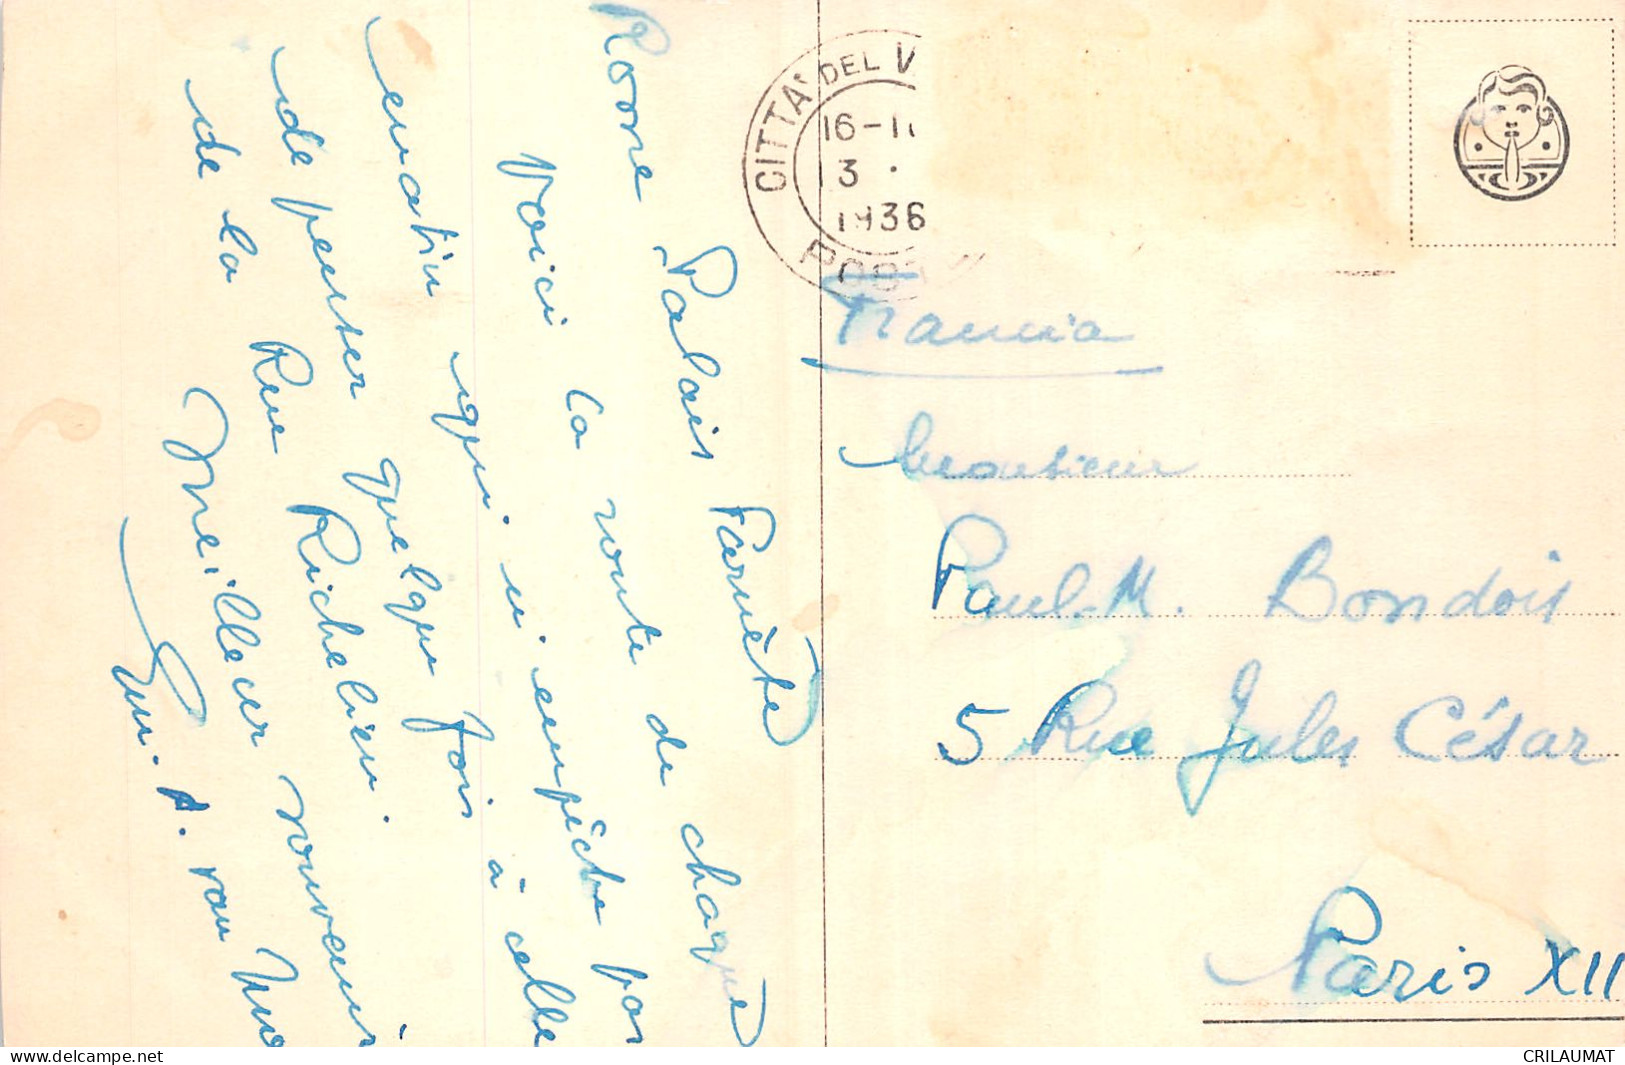 Rome Palais Farnèse
Voici la route de chaque
matin qui n'empêche pas
de penser quelque fois à celle
de la Rue Richelieu.
Meilleur souvenir
Em. A. van Mo
CITTA' DEL V
16-1
3 .
1936
POST
Francia
Monsieur
Paul-M. Bondois
5 Rue Jules César
Paris XII
CRILAUMAT